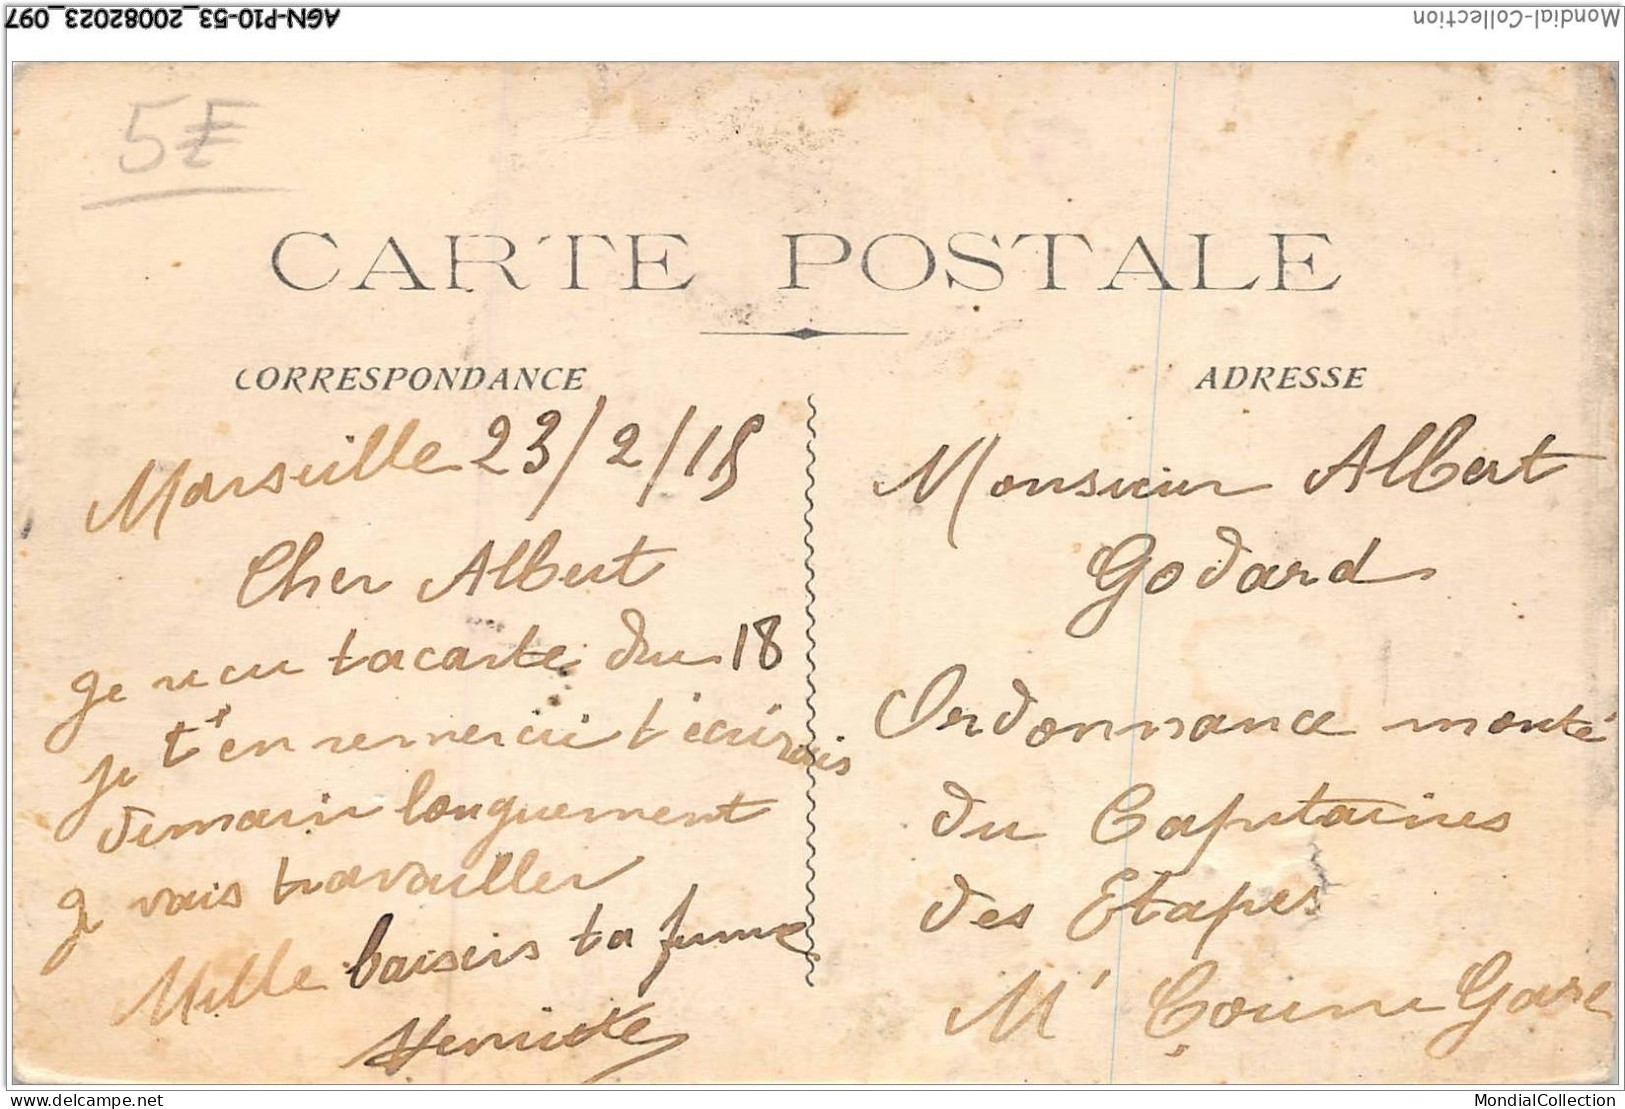 AGN-P10-53_20082023_097
Mondial-Collection
5€
CARTE POSTALE
CORRESPONDANCE
Marseille 23/2/15
Cher Albert
Je recu ta carte du 18
je t'en remercie t'écrirais
demain longuement
Je vais travailler
Mille baisers ta femme
Henriette
ADRESSE
Monsieur Albert
Godard
Ordonnance monté
du Capitaines
des Etapes
Mr Gare
delcampe.net
MondialCollection